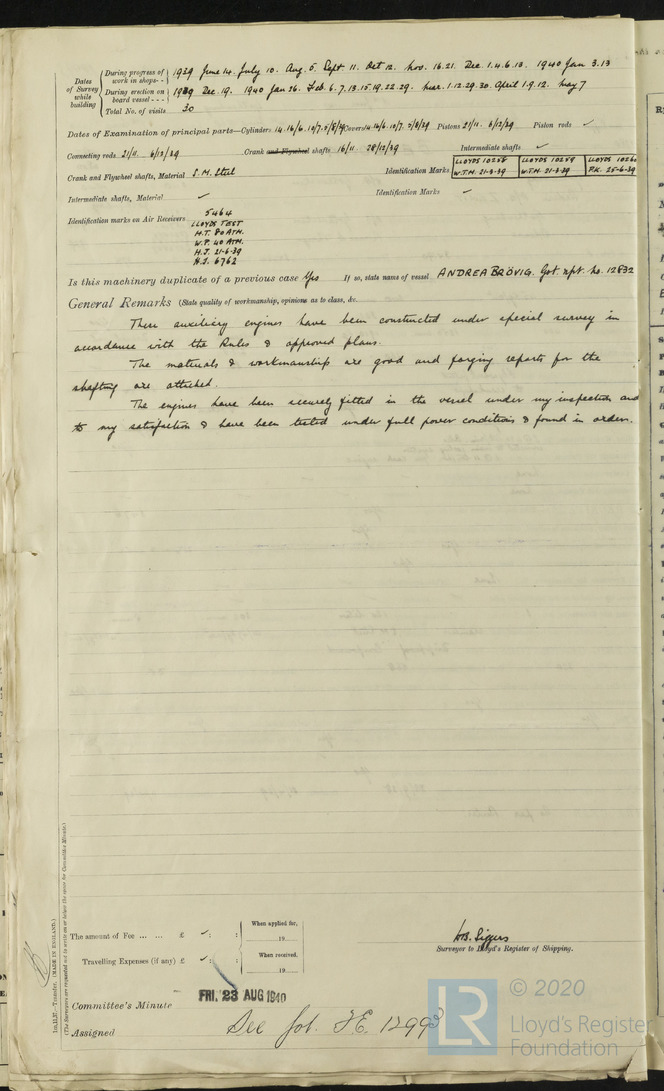 Dates of Survey while building
During progress of work in shops - - 1939 June 14. July 10. Aug. 5. Sept 11. Oct 12. Nov. 16.21. Dec. 1.4.6.13. 1940 Jan 3.13
During erection on board vessel - - - 1939 Dec. 19. 1940 Jan 26. Feb. 6.7.13.15.19.22.29. Mar. 1.12.29.30. April 1.9.12. May 7
Total No. of visits 30
Dates of Examination of principal parts—Cylinders 14.16/6. 10/7. 5/8/39 Covers 14.16/6. 10/7. 5/8/39 Pistons 21/11. 6/12/39 Piston rods ✓
Connecting rods 21/11 6/12/39 Crank and Flywheel shafts 16/11 28/12/39 Intermediate shafts ✓
Crank and Flywheel shafts, Material S.M. Steel Identification Marks LLOYDS 10258 W.T.H. 21-3-39 LLOYDS 10259 W.T.H. 21-3-39 LLOYDS 10260 P.K. 25-6-39
Intermediate shafts, Material ✓ Identification Marks ✓
Identification marks on Air Receivers 5464
LLOYDS TEST
H.T. 80 ATM.
W.P. 40 ATM.
H.J. 21-6-39
N.S. 6762
Is this machinery duplicate of a previous case Yes If so, state name of vessel ANDREA BRÖVIG. Got rpt. no. 12832
General Remarks (State quality of workmanship, opinions as to class, &c.
These auxiliary engines have been constructed under special survey in
accordance with the Rules & approved plans.
The materials & workmanship are good and forging reports for the
shafting are attached.
The engines have been securely fitted in the vessel under my inspection and
to my satisfaction & have been tested under full power conditions & found in order.
1m.11.37.—Transfer. (MADE IN ENGLAND.)
(The Surveyors are requested not to write on or below the space for Committee Minute.)
The amount of Fee ... ... £ ✓ : :
When applied for,
19
Travelling Expenses (if any) £ ✓ : :
When received,
19
Surveyor to Lloyd's Register of Shipping.
Committee's Minute FRI. 23 AUG 1940
Assigned See Got. F.E. 12993
LR © 2020
Lloyd's Register
Foundation